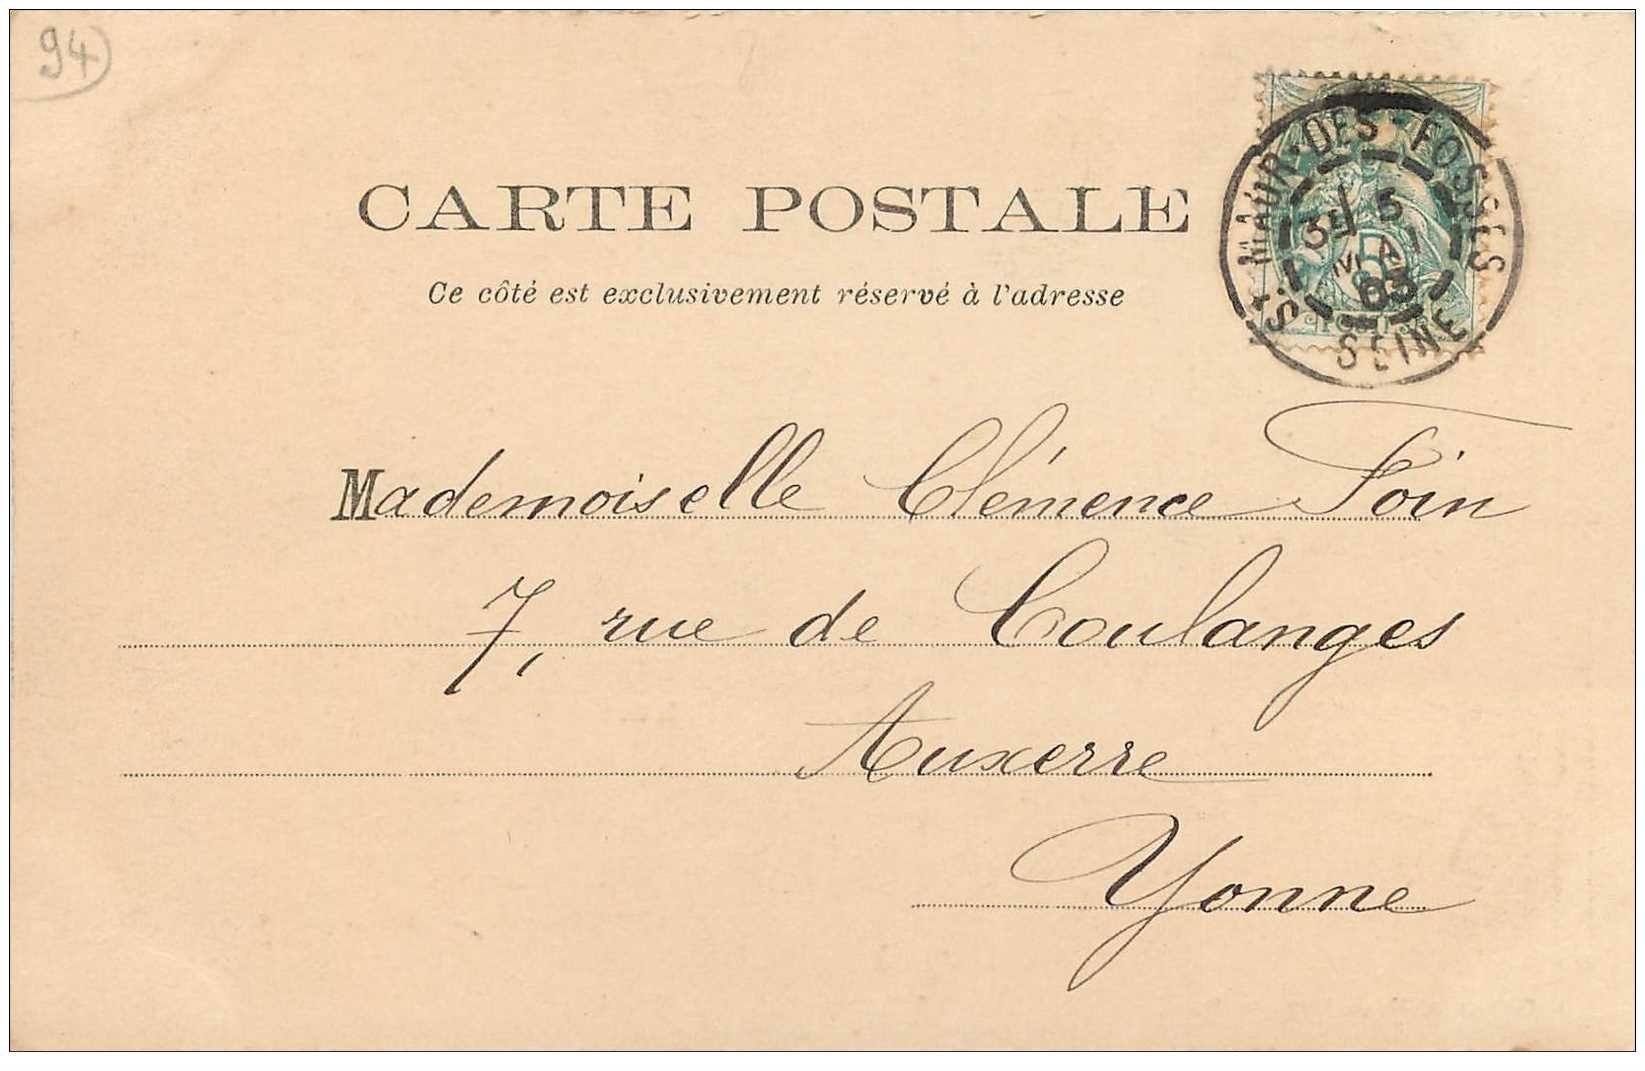 94
CARTE POSTALE
Ce côté est exclusivement réservé à l'adresse
S. MAUR-DES-FOSSÉS
3E 5
MAI
03
SEINE
5
Mademoiselle Clémence Foin
7, rue de Coulanges
Auxerre
Yonne